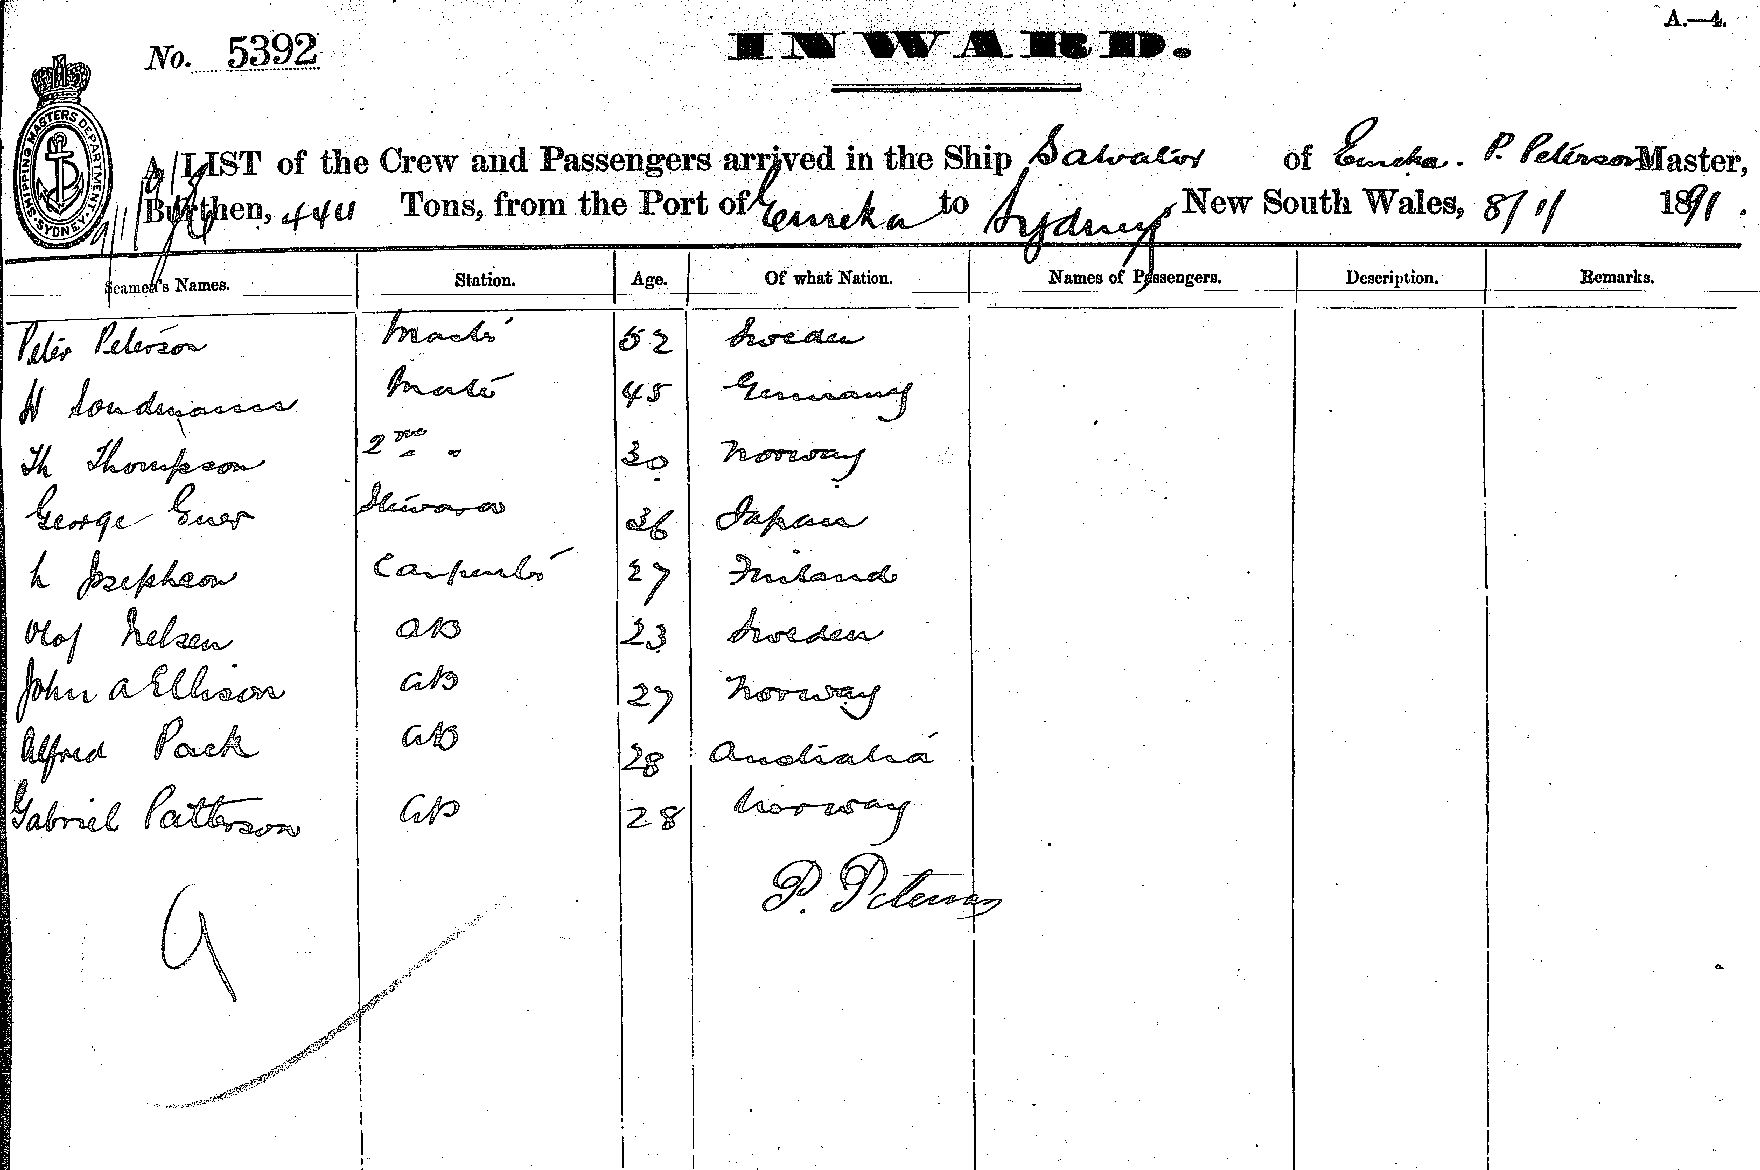 A.—4.
No. 5392
INWARD.
SHIPPING MASTERS DEPARTMENT SYDNEY
A LIST of the Crew and Passengers arrived in the Ship Salvator of Eureka. P. Peterson Master,
Burthen, 444 Tons, from the Port of Eureka to Sydney, New South Wales, 8/11 1891.
Seamen's Names. Station. Age. Of what Nation. Names of Passengers. Description. Remarks.
Peter Peterson Master 52 Sweden
H Sondmann Mate 45 Germany
Th Thompson 2nd " " 30 Norway
George Ener Steward 36 Japan
L Josephson Carpenter 27 Finland
Olof Nelsen AB 23 Sweden
John A Ellison AB 27 Norway
Alfred Pack AB 28 Australia
Gabriel Patterson AB 28 Norway
P. Peterson
9